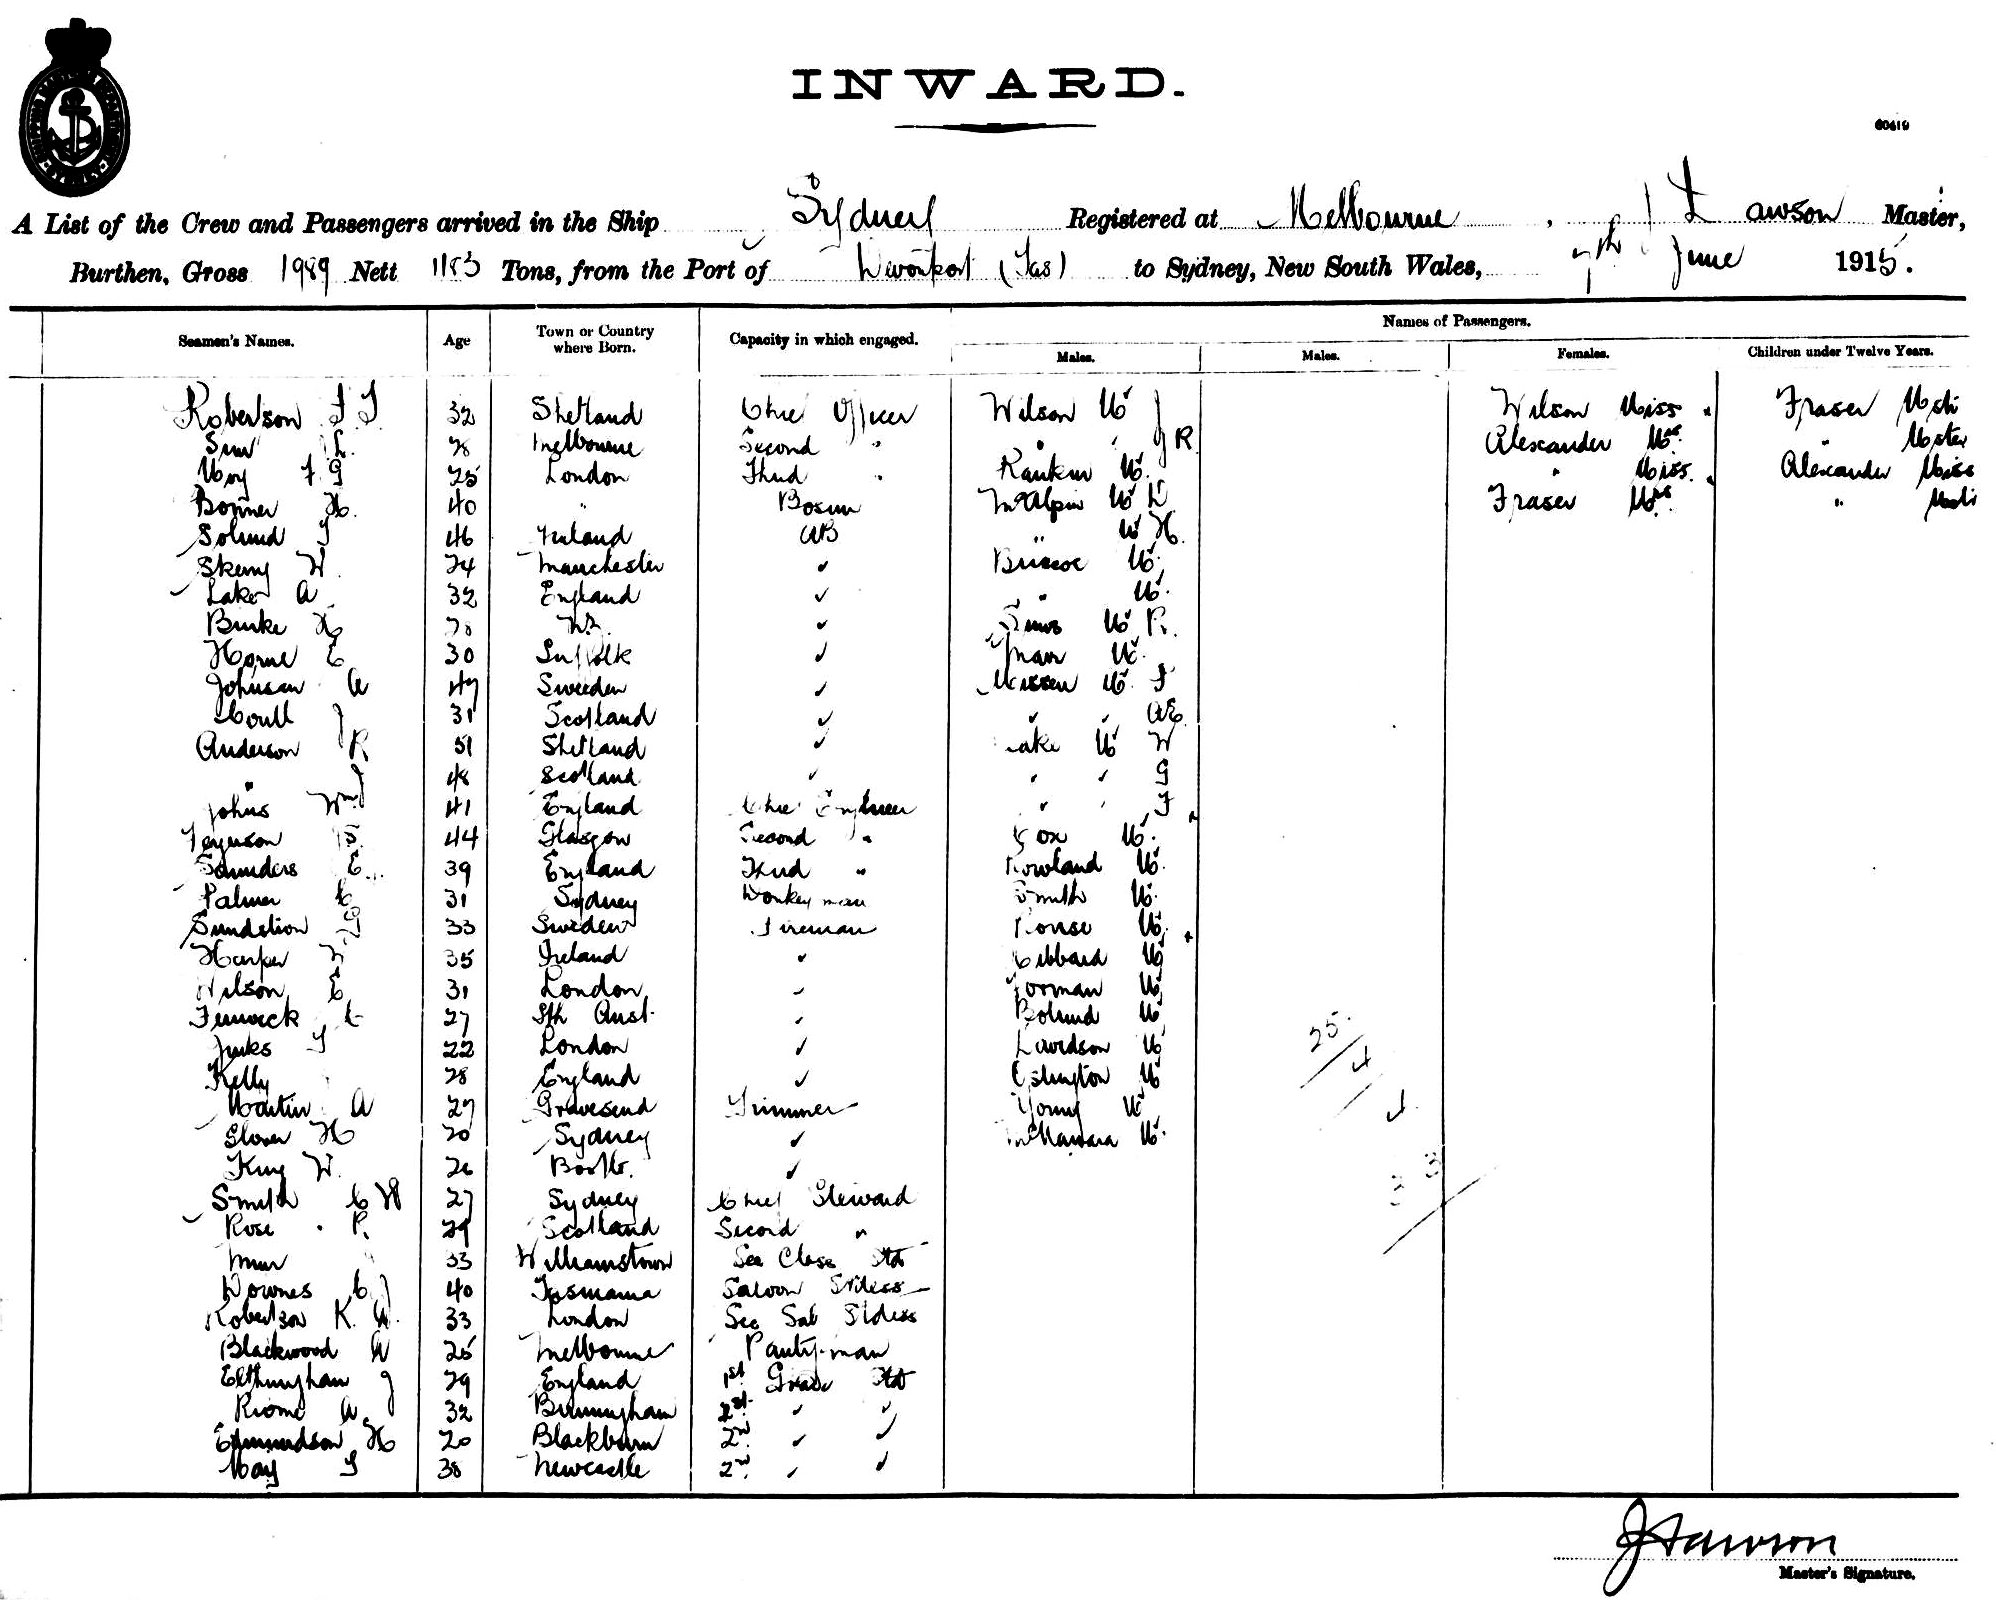 INWARD.
60619
A List of the Crew and Passengers arrived in the Ship Sydney Registered at Melbourne, J Lawson Master,
Burthen, Gross 1989 Nett 1183 Tons, from the Port of Devonport (Tas) to Sydney, New South Wales, 7th June 1915.
Names of Passengers.
Seamen's Names. Age Town or Country where Born. Capacity in which engaged. Males. Males. Females. Children under Twelve Years.
Robertson 32 Shetland Chief Officer Wilson Mr J R Wilson Miss Fraser
28 Melbourne Second " " " Alexander Mrs " Mster
25 London Third " Rankin Mr " Miss Alexander Miss
Bonner H. 40 " Bosun McAlpin Mr D Fraser Mrs "
46 AB " Mr H.
Skerry W. 24 Manchester ✓ Briscoe Mr
Lake A 32 England ✓ " Mr.
Burke H 28 ✓ Mr R.
Horne E 30 Suffolk ✓ Mr.
Johnson A 47 Sweden ✓ Mr F
31 Scotland ✓ " " AE.
Anderson R 51 Shetland ✓ Lake Mr W
" 48 Scotland ✓ " " G
Johns Wm 41 England Chief Engineer " " F
Ferguson 44 Glasgow Second " Cox Mr.
Saunders E 39 England Third " Rowland Mr.
Palmer C 31 Sydney Donkeyman Smith Mr.
33 Sweden Fireman Rouse Mr.
Harper W 35 Ireland ✓ Hibbard Mr
Wilson E 31 London ✓ Gorman Mr
Fenwick C 27 Sth Aust. ✓ Mr
Jinks 22 London ✓ Davidson Mr
Kelly 28 England ✓ Eslington Mr
Martin A 27 Gravesend Trimmer Young Mr
Glover H 20 Sydney ✓ McNamara Mr.
King W. 26 Bootle. ✓
Smith C W 27 Sydney Chief Steward
Rose R. 29 Scotland Second "
33 Williamstown Sec Class Std
Downes C J 40 Tasmania Saloon Stdess
Robertson K. A. 33 London Sec Sal Stdess
Blackwood A 25 Melbourne Pantryman
J 29 England 1st Grade Std
A 32 Birmingham ✓ ✓
Edmundson H 20 Blackburn 2nd ✓ ✓
May 38 Newcastle 2nd ✓ ✓
25
4
4
33
J Lawson
Master's Signature.